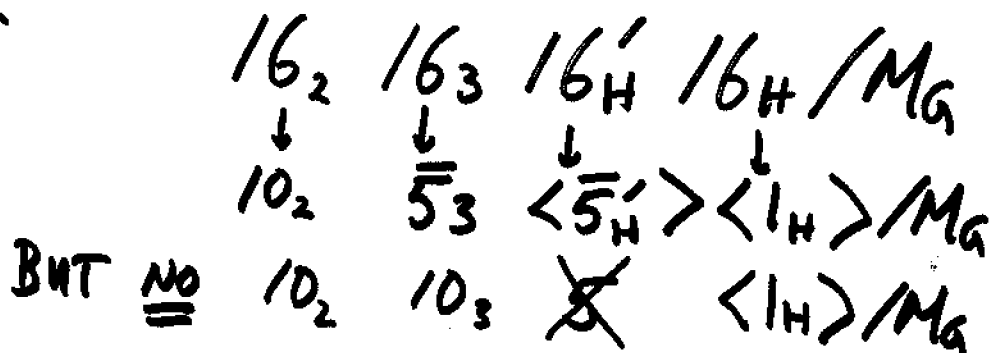 16₂ 16₃ 16′_H 16_H /M_G
↓ ↓ ↓ ↓
10₂ 5̿₃ <5̅′_H> <1_H>/M_G
BUT NO 10₂ 10₃ 5 <1_H>/M_G